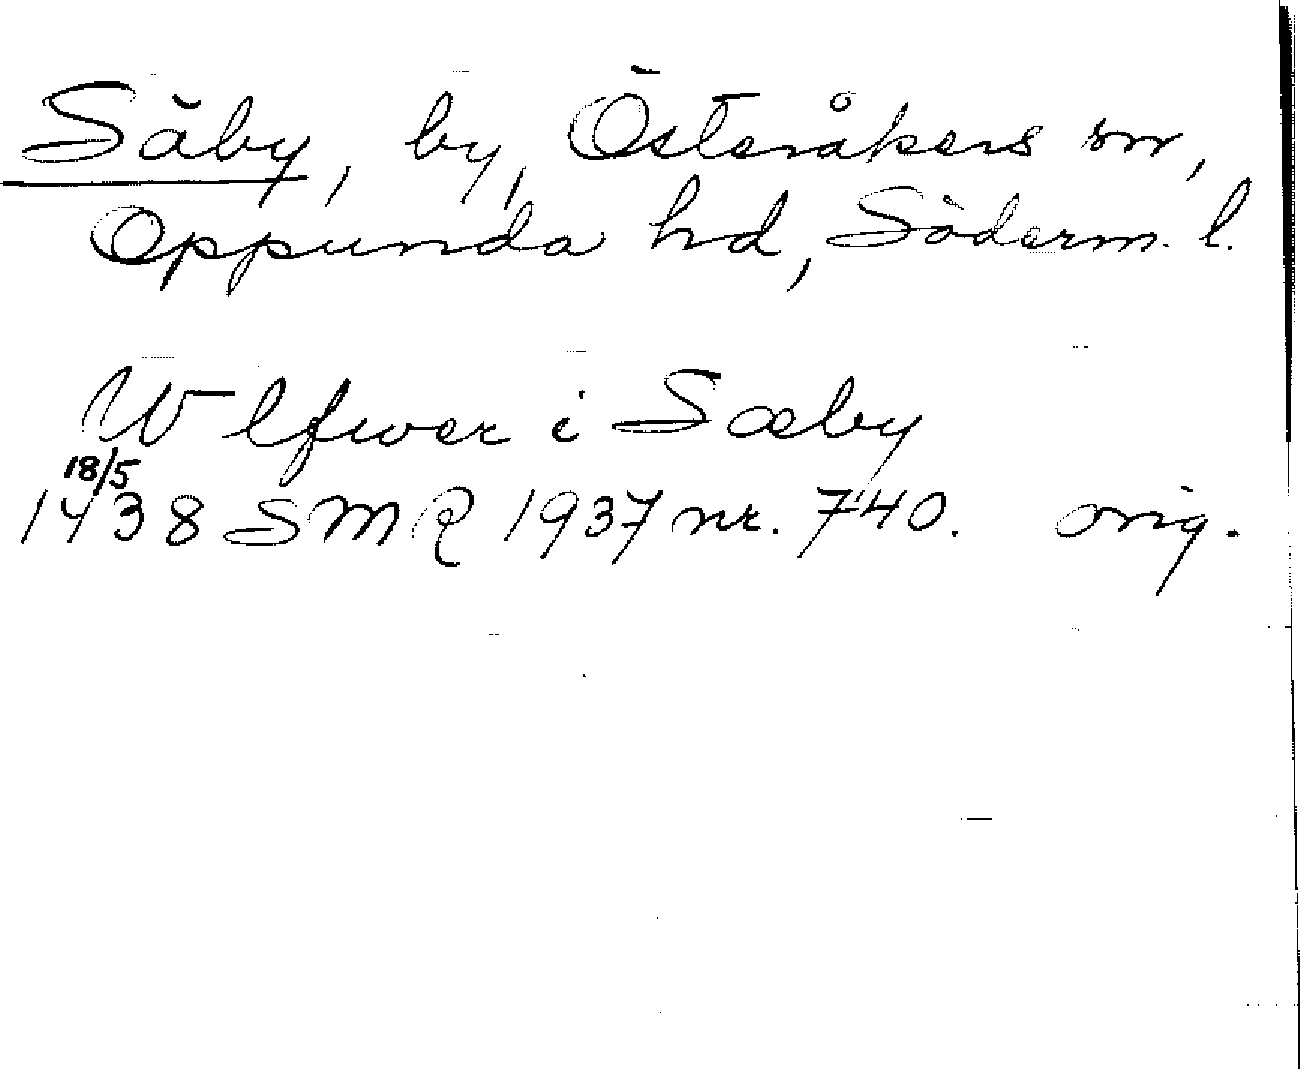 Säby, by, Österåkers sn,
Oppunda hd, Söderm. l.
Wlfwer i Sæby
18/5
1438 SMR 1937 nr. 740. orig.